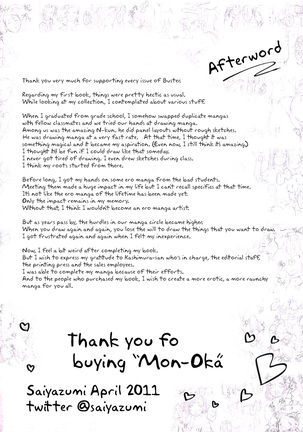 Afterword
Thank you very much for supporting every issue of Buster.
Regarding my first book, things were pretty hectic as usual.
While looking at my collection, I contemplated about various stuff.
When I graduated from grade school, I somehow swapped duplicate mangas
with fellow classmates and we tried our hands at drawing manga.
Among us was the amazing N-kun, he did panel layouts without rough sketches.
He was drawing manga at a very fast rate. At that time, I thought it was
something magical and it became my aspiration. (Even now, I still think its amazing)
I thought itd be fun if I could draw like that someday.
I never got tired of drawing, I even drew sketches during class.
I think my roots started from there.
Before long, I got my hands on some ero manga from the bad students.
Meeting them made a huge impact in my life but I can't recall specifics at that time.
It's not like the ero manga of the lifetime has been made yet.
Only the impact remains in my memory.
Without that, I think I wouldn't become an ero manga artist.
But as years pass by, the hurdles in our manga circle became higher.
When you draw again and again, you lose the will to draw the things that you want to draw.
I got frustrated again and again when I felt my inexperience.
Now, I feel a bit weird after completing my book.
But I wish to express my gratitude to Kashimura-san who's in charge, the editorial staff
the printing press and the sales employees.
I was able to complete my manga because of their efforts.
And to the people who purchased my book, I wish to create a more erotic, a more raunchy
manga for you all.
Thank you fo
buying "Mon-Oka"
Saiyazumi April 2011
twitter @saiyazumi